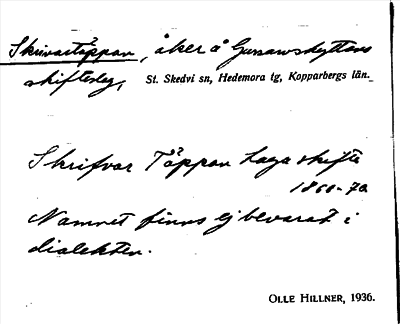 Skrivartäppan, åker å Gussarvshyttans
skifteslag, St. Skedvi sn, Hedemora tg, Kopparbergs län.
Skrifvar Täppan Laga skifte
1860-70
Namnet finns ej bevarat i
dialekten.
OLLE HILLNER, 1936.